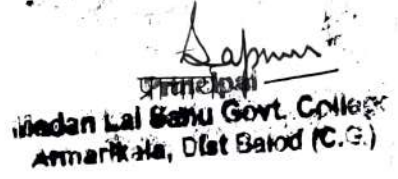 प्राचार्य
Madan Lal Sahu Govt. College
Armarikala, Dist Balod (C.G.)